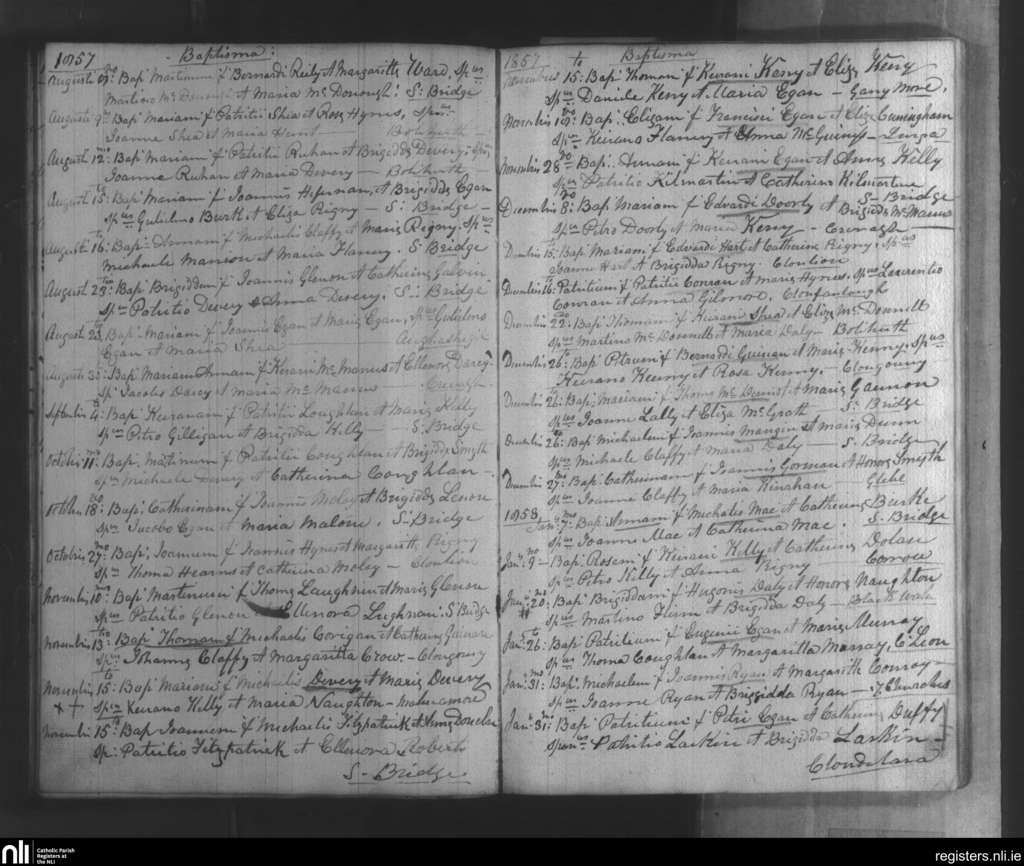 1857 Baptisma:
Augusti 9: Bap. Martinum f Bernardi Reily et Margarette Ward, Sp us
Martino Mc Donough et Maria Mc Donough. S: Bridge
Augusti 9: Bap: Mariam f Patritii Shea et Rose Hynes, Spus
Joanne Shea et Maria Hunt —
August 12: Bap: Mariam f Patritii Ruhan et Brigidde Devery,
Joanne Ruhan et Maria Devery —
August 15: Bap: Mariam f Joannis Heffernan, et Brigidde Egan
Sp us Gulielmo Burk et Eliza Rigny — S: Bridge —
August 16: Bap: Annam f Michaelis Claffy et Marie Rigny. Sp us
Michaele Mannion et Maria Flanery. S Bridge
August 23: Bap: Brigiddam f Joannis Glenon et Catherine Galvin
Sp us Patritio Devery & Anna Devery. S: Bridge
August 23 Bap: Mariam f Joannis Egan et Marie Egan, Sp us Gulielmo
Egan et Maria Shea
August 30: Bap: Mariam Annam f Kierani Mc Manus et Ellenore Darcy
Sp: Jacobo Darcy et Maria Mc Manus —
Septembris 4: Bap: Kieranum f Patritii Loughlin et Marie Kelly
Sp us Petro Gilligan et Brigidda Killy — S: Bridge
Octobris 11: Bap. Martinum f Patritii Coughlan et Brigidde Smyth
Sp us Michaele Devery et Catherina Coughlan —
Octobris 18: Bap: Catherinam f Joannis Moley et Brigidde Lenon
Sp us Jacobo Egan et Maria Malone. S: Bridge
Octobris 27: Bap: Joannem f Joannis Hynes et Margarette Rigny
Sp us Thoma Hearns et Catherina Moley — Clonlion
Novembris 10: Bap: Martinum f Thome Laughnan et Marie Glenon
Sp us Patritio Glenon Ellenora Lughnan: S: Bridge
Novembris 13: Bap Thomam f Michaelis Corigan et Catharine
Sp us Johanne Claffy et Margaritta Crow. — Clongowny
Novembris 15: Bap: Mariam f Michaelis Devery et Marie Devery
++ Sp us Keirano Killy et Maria Naughton —
Novembris 15: Bap Joannem f Michaelis Fitzpatrick et
Sp: Patritio Fitzpatrick et Ellenora Roberts
S — Bridge
1857 Baptisma
Novembris 15: Bap: Thomam f Keirani Keny et Eliza Keny
Sp us Daniele Keny et Maria Egan —
Novembris 19: Bap: Elizam f Francisci Egan et Elize Cuningham
Sp us Keirano Flanery et Anna Mc Guinys —
Novembris 28: Bap: Annam f Keirani Egan et Anne Killy
Sp us Patritio Kilmartin et Catherina Kilmartin
S — Bridge
Decembris 8: Bap Mariam f Edvardi Doorly et Brigidde Mc Manus
Sp us Petro Doorly et Maria Keny —
Decembris 15: Bap Mariam f Edvardi Hart et Catherine Rigny. Sp us
Joanne Hart et Brigidda Rigny. Clonlion
Decembris 16: Patritium f Patritii Conran et Marie Hynes, Sp us Laurentio
Conran et Anna Gilmore, Clonfanlough
Decembris 22: Bap: Thomam f Keirani Shea et Elize Mc Donnell
Sp us Martino Mc Donnell et Maria Daly —
Decembris 26: Bap: f Bernardi Guinan et Marie Kenny. Sp us
Keirano Keeny et Rosa Kenny. — Clongowny
Decembris 26: Bap: Mariam f Thome Mc et Marie Gannon
Sp us Joanne Lally et Eliza Mc Grath S: Bridge
Decembris 26: Bap: Michaelem f Joannis Mangin et Marie Dunn
Sp us Michaele Claffy et Maria Daly — S. Bridge
Decembris 27: Bap: Catherinam f Joannis Gorman et Honore Smyth
Sp us Joanne Claffy et Maria Kinahan Glebe
1858,
Jan. 7: Bap: Annam f Michalis Mac et Catherine Burke
Sp us Joanne Mac et Catherina Mac. S. Bridge
Jan. 9 — Bap: Rosam f Kierani Killy et Catherine Dolan
Sp us Petro Killy et Anna Rigny
Jan. 20: Bap: Brigiddam f Hugonis Daly et Honore Naughton
# Sp us Martino Flinn et Brigidda Daly —
Jan. 26: Bap: Patritium f Eugenii Egan et Marie Murray
Sp us Thoma Coughlan et Margaritta Murray,
Jan. 31: Bap: Michaelem f Joannis Ryan et Margarette Conroy —
Sp us Joanne Ryan et Brigidda Ryan —
Jan. 31: Bap: Patritium f Petri Egan et Catherine Duffy
Sp us Patritio Larkin et Brigidda Larkin —
nli Catholic Parish
Registers at
the NLI
registers.nli.ie